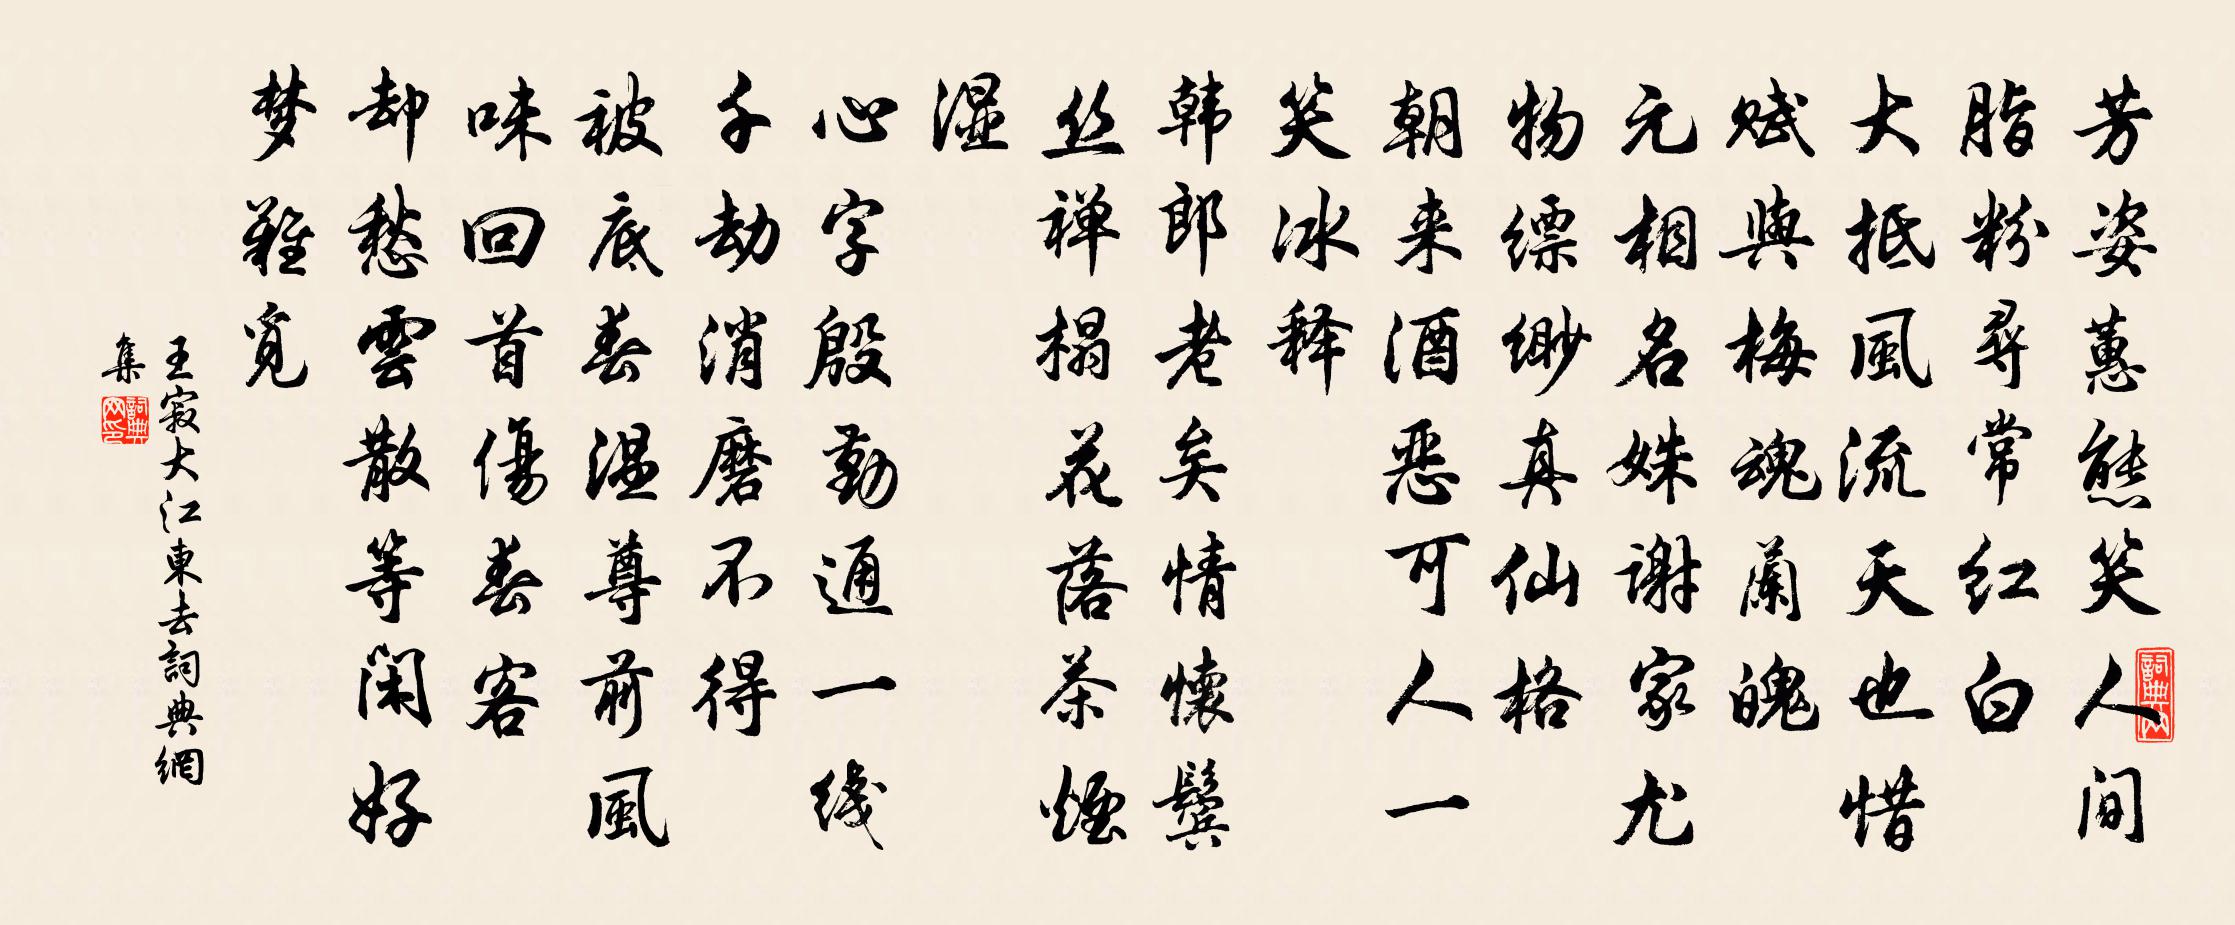 芳姿蕙態笑人间
脂粉尋常红白
大抵風流天也惜
赋與梅魂蘭魄
元相名姝谢家尤
物缥缈真仙格
朝来酒恶可人一
笑冰释
韩郎老矣情懷鬓
丝禅榻花落茶煙
湿
心字殷勤通一线
千劫消磨不得
被底春温尊前風
味回首傷春客
却愁雲散等闲好
梦難覓
王寂大江東去詞典網
集
詞典网
詞典网印